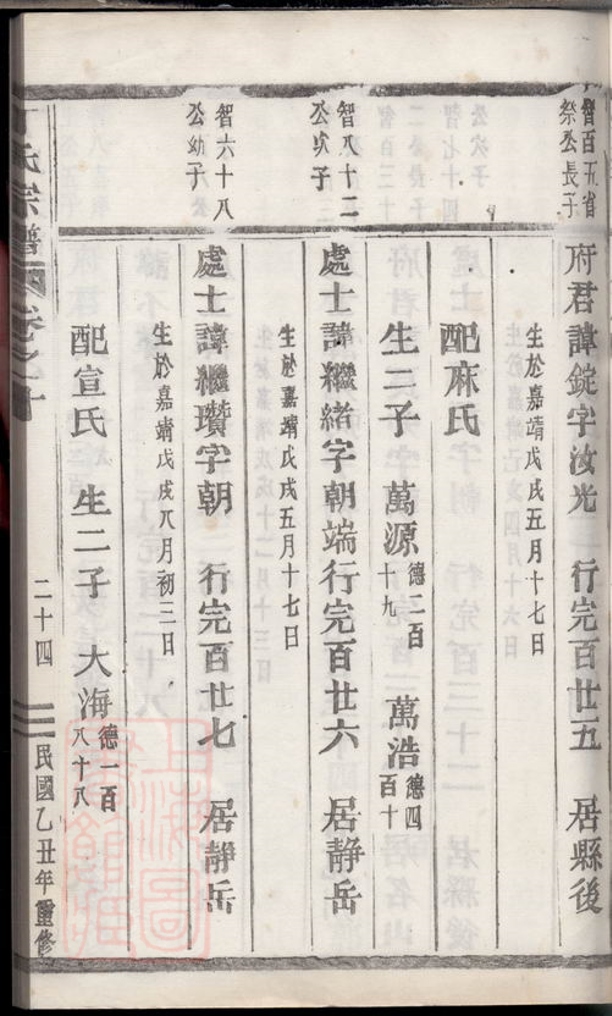 智百五省
祭公長子
府君諱錠字汝光 行完百廿五 居縣後
生於嘉靖戊戌五月十七日
配麻氏
生二子 萬源 德二百十九 萬浩 德四百十
智八十二
公次子
處士諱繼緒字朝端行完百廿六 居静岳
生於嘉靖戊戌五月十七日
智六十八
公幼子
處士諱繼瓚字朝 行完百廿七 居静岳
生於嘉靖戊戌八月初三日
配宣氏 生二子 大海 德一百八十八
氏宗譜 卷之
二十四
民國乙丑年重修